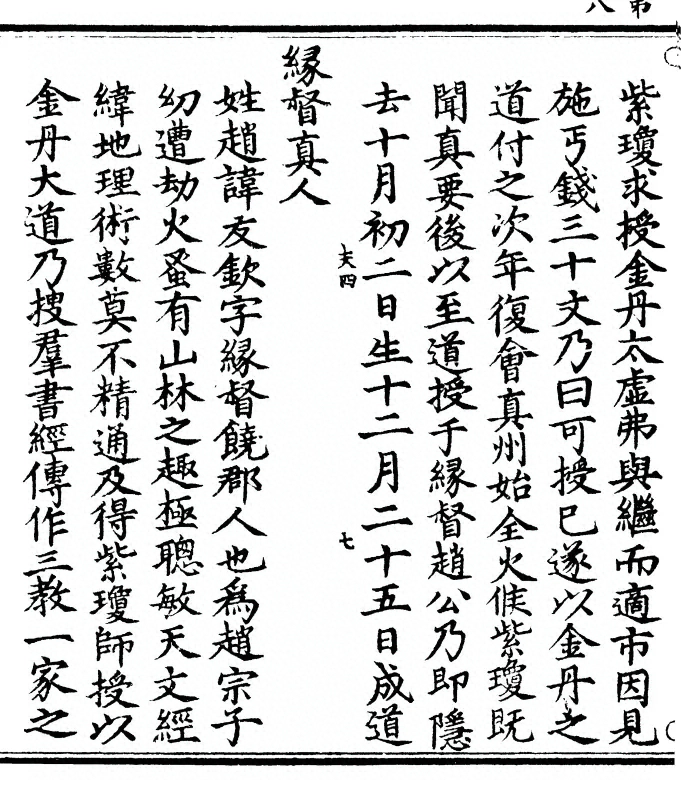 紫瓊求授金丹太虛弗與繼而適市因見
施丐錢三十文乃曰可授巳遂以金丹之
道付之次年復會真州始全火候紫瓊既
聞真要後以至道授于緣督趙公乃即隱
去十月初二日生十二月二十五日成道
夫四
七
緣督真人
姓趙諱友欽字緣督饒郡人也爲趙宗子
幼遭劫火蚤有山林之趣極聰敏天文經
緯地理術數莫不精通及得紫瓊師授以
金丹大道乃搜羣書經傳作三教一家之